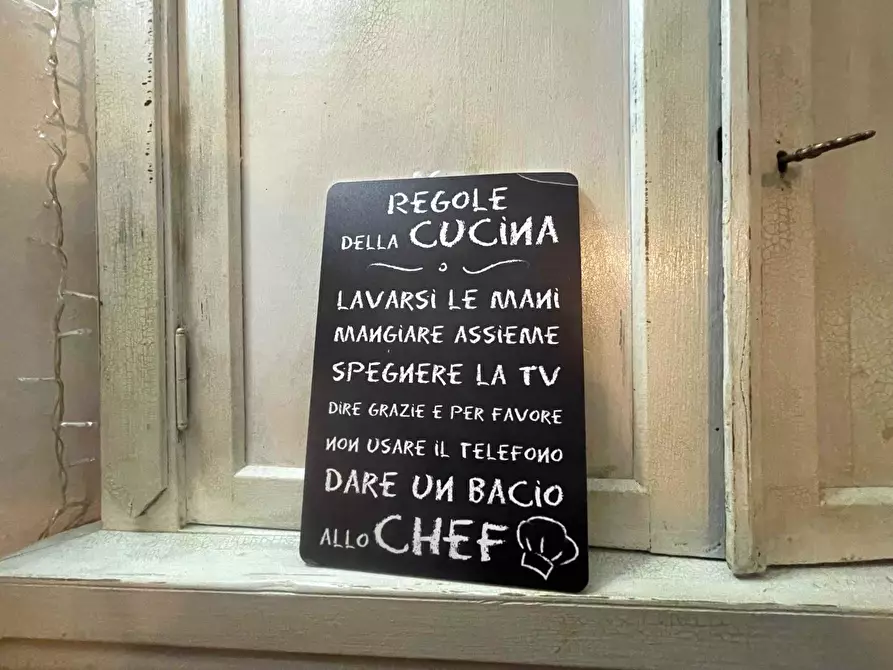 REGOLE
DELLA CUCINA
LAVARSI LE MANI
MANGIARE ASSIEME
SPEGNERE LA TV
DIRE GRAZIE E PER FAVORE
NON USARE IL TELEFONO
DARE UN BACIO
ALLO CHEF